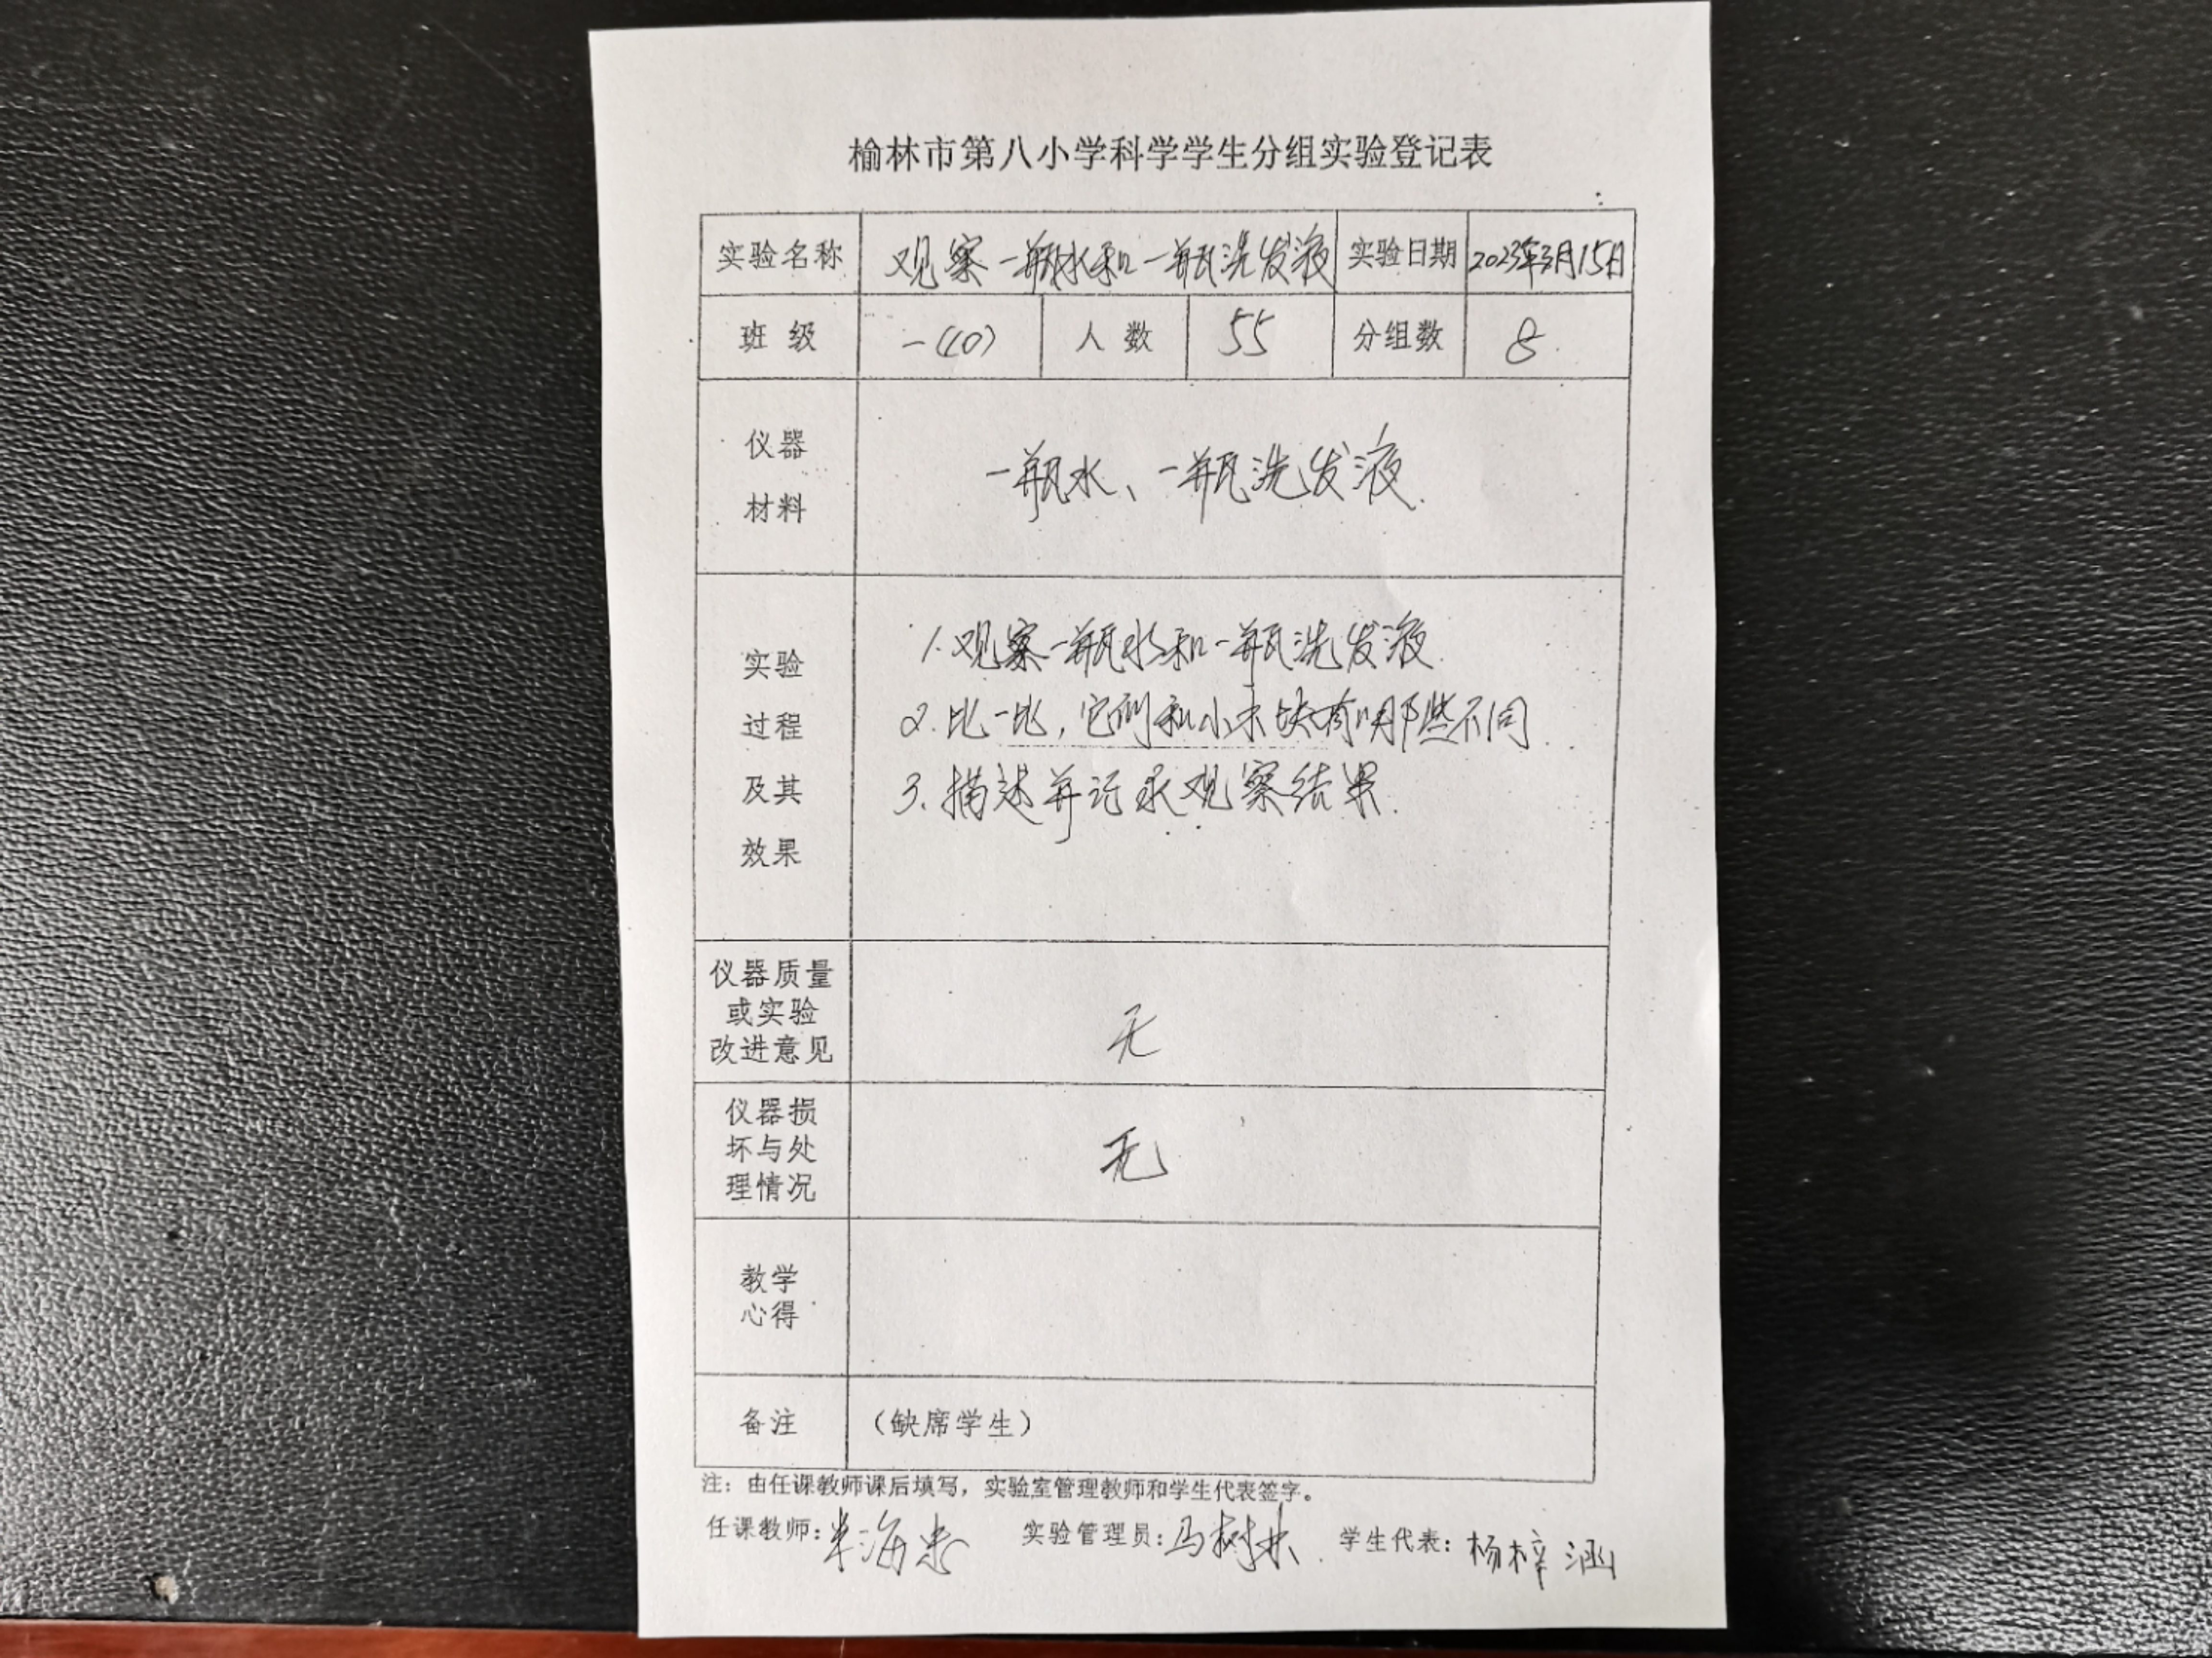 榆林市第八小学科学学生分组实验登记表
实验名称 观察一瓶水和一瓶洗发液 实验日期 2023年3月15日
班 级 一(10) 人 数 55 分组数 8
仪器
材料
一瓶水、一瓶洗发液.
实验
过程
及其
效果
1.观察一瓶水和一瓶洗发液.
2.比一比,它们和小木块有哪些不同.
3.描述并记录观察结果.
仪器质量
或实验
改进意见
无
仪器损
坏与处
理情况
无
教学
心得
备注 （缺席学生）
注：由任课教师课后填写，实验室管理教师和学生代表签字。
任课教师: 实验管理员:马树林 学生代表:杨梓涵